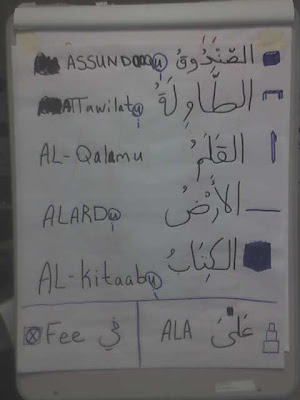 ASSUNDOOQU الصُّنْدُوقُ
ATTawilatu الطَّاوِلَةُ
AL-Qalamu القَلَمُ
ALARDU الأَرْضُ
AL-kitaabu الكِتَابُ
Fee فِي ALA عَلَىَ